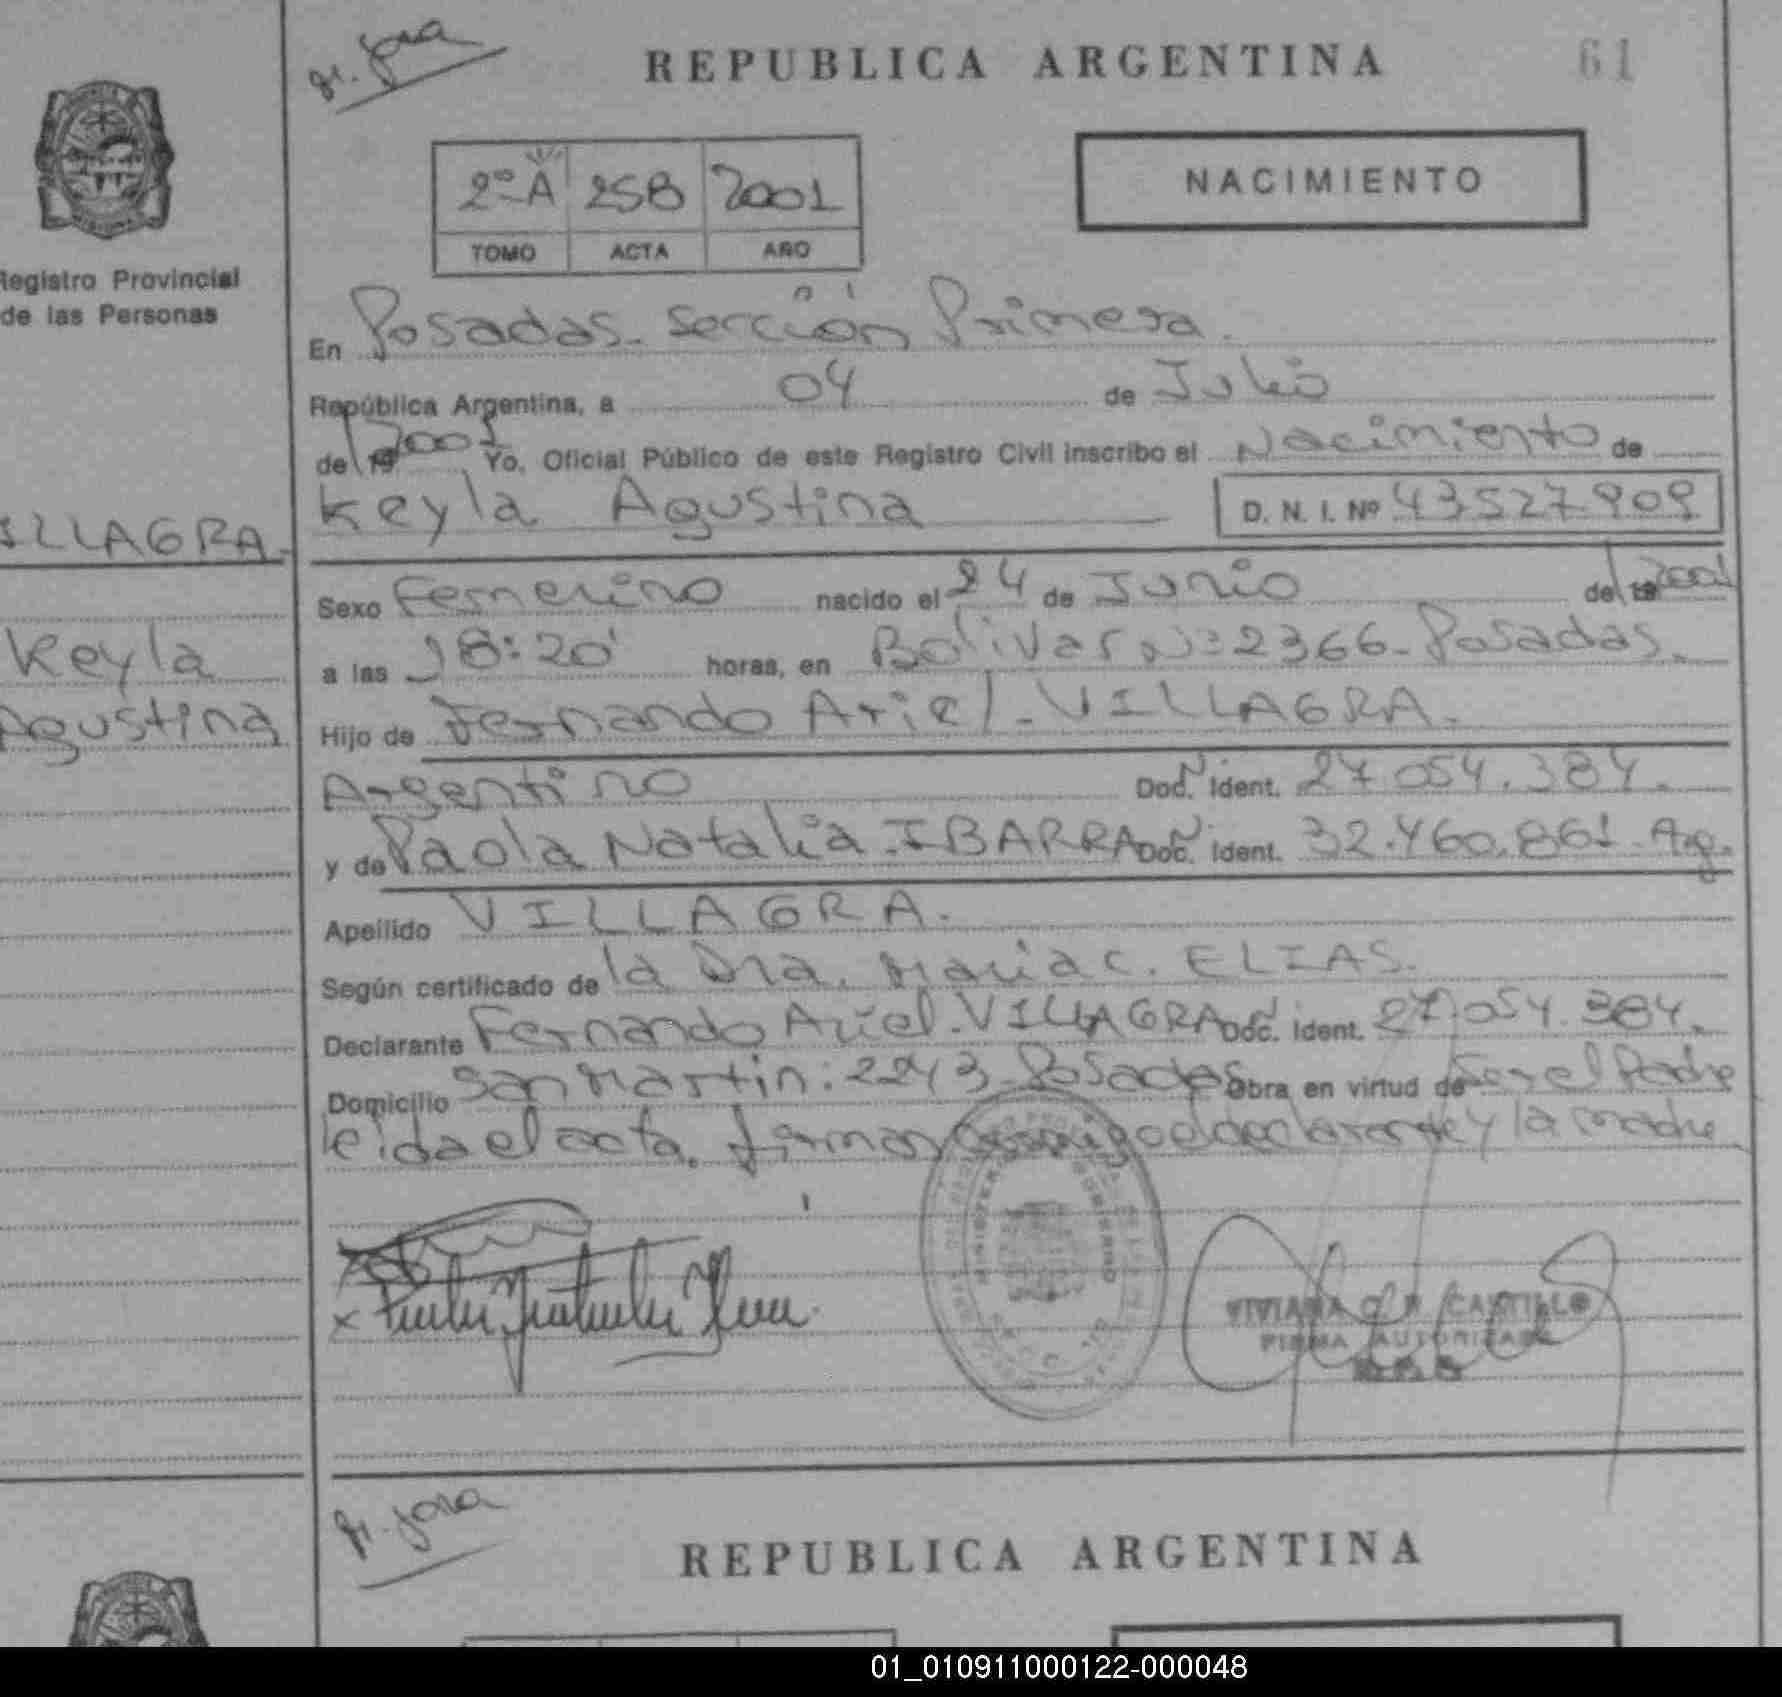 REPUBLICA ARGENTINA
61
2º A 258 2001
TOMO ACTA AÑO
NACIMIENTO
Registro Provincial
de las Personas
VILLAGRA.
Keyla
Agustina
En Posadas. Sección Primera.
República Argentina, a 04 de Julio
de 2001 Yo, Oficial Público de este Registro Civil inscribo el Nacimiento de
Keyla Agustina D. N. I. Nº 43527909
Sexo Femenino nacido el 24 de Junio de 2001
a las 18:20' horas, en Bolivar Nº: 2366. Posadas.
Hijo de Fernando Ariel. VILLAGRA.
Argentino Doc. Ident. 27.054.384.
y de Paola Natalia. IBARRA Doc. Ident. 32.460.861. Arg.
Apellido VILLAGRA.
Según certificado de la Dra. Maria C. ELIAS.
Declarante Fernando Ariel. VILLAGRA Doc. Ident. 27.054.384.
Domicilio San Martin: 2243. Posadas Obra en virtud de Ser el Padre
leida el acta, firman conmigo el declarante y la madre
VIVIANA CASTILLO
FIRMA AUTORIZADA
REPUBLICA ARGENTINA
01_010911000122-000048